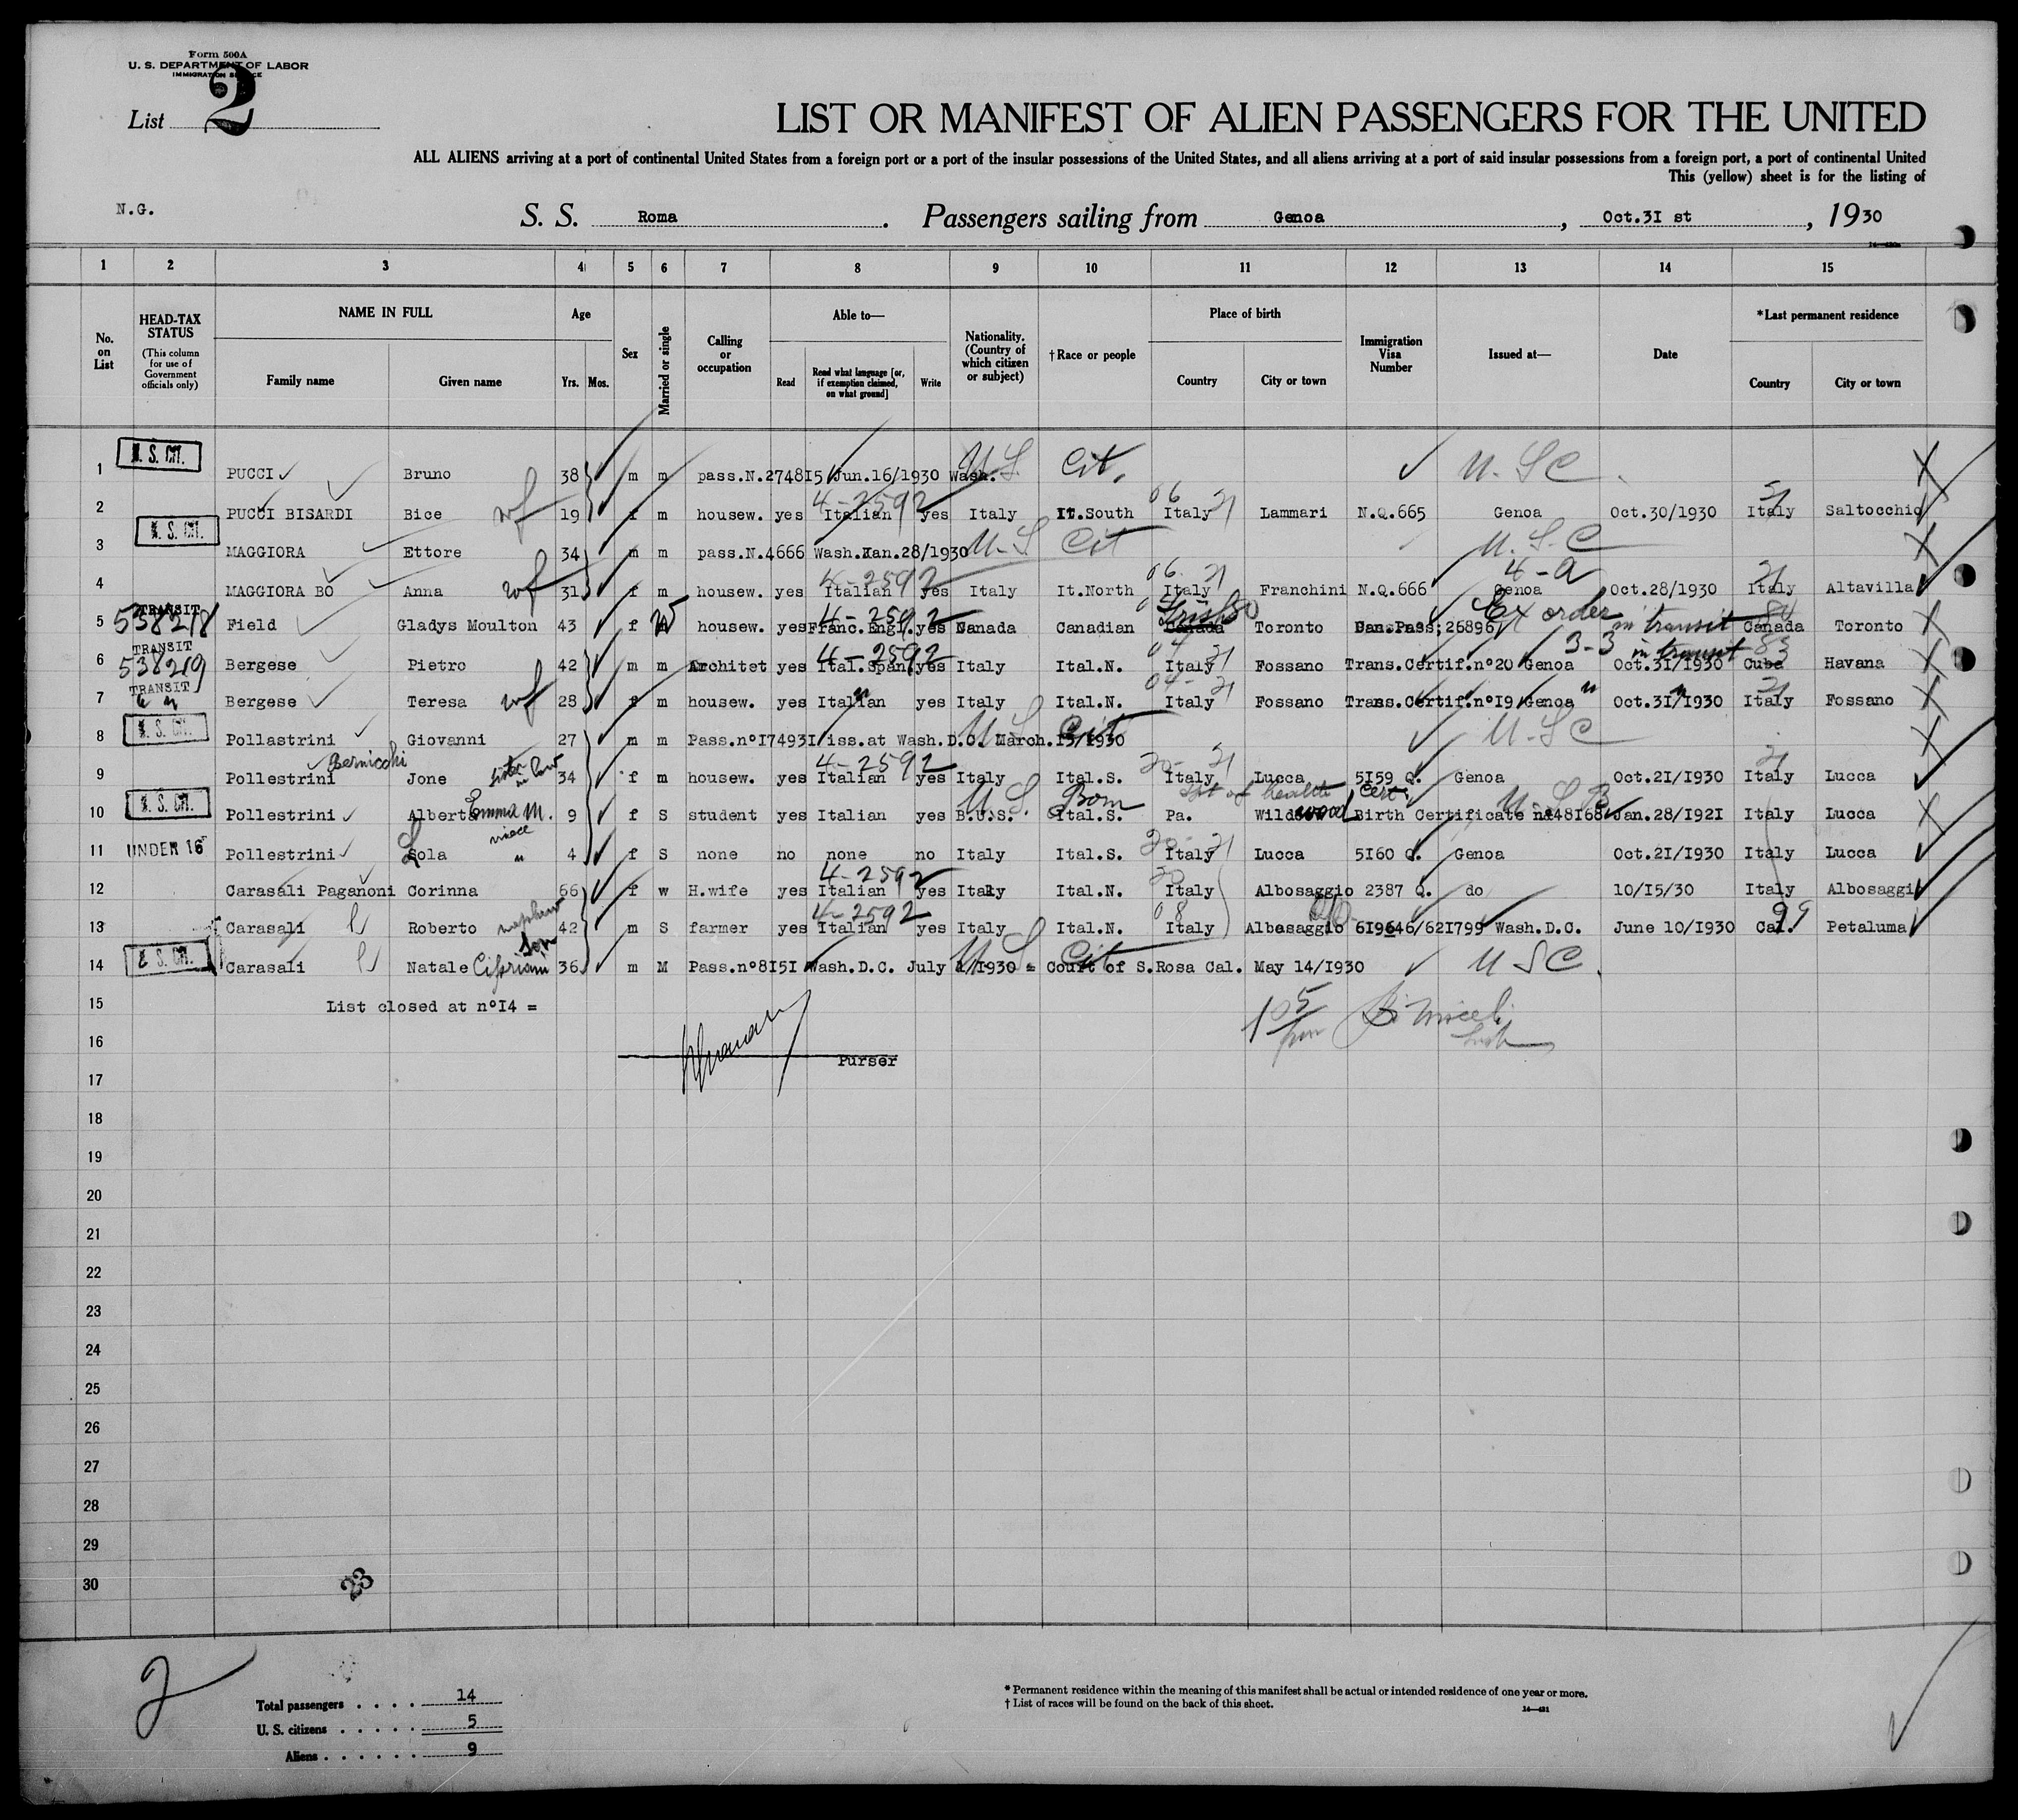 Form 500A
U. S. DEPARTMENT OF LABOR
IMMIGRATION SERVICE
List 2
LIST OR MANIFEST OF ALIEN PASSENGERS FOR THE UNITED
ALL ALIENS arriving at a port of continental United States from a foreign port or a port of the insular possessions of the United States, and all aliens arriving at a port of said insular possessions from a foreign port, a port of continental United
This (yellow) sheet is for the listing of
N.G.
S. S. Roma. Passengers sailing from Genoa, Oct.3I st, 1930
1 2 3 4 5 6 7 8 9 10 11 12 13 14 15
No. on List
HEAD-TAX STATUS (This column for use of Government officials only)
NAME IN FULL
Family name Given name
Age
Yrs. Mos.
Sex
Married or single
Calling or occupation
Able to—
Read Read what language [or, if exemption claimed, on what ground] Write
Nationality. (Country of which citizen or subject)
†Race or people
Place of birth
Country City or town
Immigration Visa Number
Issued at—
Date
*Last permanent residence
Country City or town
1 U. S. CIT. PUCCI Bruno 38 m m pass.N.2748I5/Jun.16/1930 Wash. U S Cit. U. S C
4-2592
2 PUCCI BISARDI Bice wf 19 f m housew. yes Italian yes Italy It.South 06 21 Italy Lammari N.Q.665 Genoa Oct.30/1930 Italy Saltocchio
3 U. S. CIT. MAGGIORA Ettore 34 m m pass.N.4666 Wash.Jan.28/1930 U S Cit U. S. C
4-2592 4-a
4 MAGGIORA BO Anna wf 31 f m housew. yes Italian yes Italy It.North 06 21 Italy Franchini N.Q.666 Genoa Oct.28/1930 Italy Altavilla
TRANSIT 4-2592 Ex order in transit
5 538218 Field Gladys Moulton 43 f W housew. yes Franc.Engl. yes Canada Canadian Canada Toronto Can.Pass;26896 Canada Toronto
TRANSIT 4-2592 3-3 in transit
6 538219 Bergese Pietro 42 m m Architet yes Ital.Span yes Italy Ital.N. Italy Fossano Trans.Certif.nº20 Genoa Oct.3I/I930 Cuba Havana
TRANSIT
7 Bergese Teresa wf 28 f m housew. yes Italian yes Italy Ital.N. Italy Fossano Trans.Certif.nºI9 Genoa Oct.3I/I930 Italy Fossano
8 U. S. CIT. Pollastrini Giovanni 27 m m Pass.nºI7493I iss.at Wash.D.C. March.I3/I930 U S Cit U. S C
Bernicchi sister in law 4-2592
9 Pollestrini Jone 34 f m housew. yes Italian yes Italy Ital.S. Italy Lucca 5I59 Q. Genoa Oct.2I/I930 Italy Lucca
U. S. Born Dpt of health Cert. U. S. B
10 U. S. CIT. Pollestrini Albert Emma M. 9 f S student yes Italian yes B.U.S. Ital.S. Pa. Wildwood Birth Certificate nº48I68 Jan.28/I92I Italy Lucca
niece
11 UNDER 16 Pollestrini Lola " 4 f S none no none no Italy Ital.S. Italy Lucca 5I60 Q. Genoa Oct.2I/I930 Italy Lucca
4-2592
12 Carasali Paganoni Corinna 66 f w H.wife yes Italian yes Italy Ital.N. Italy Albosaggio 2387 Q. do 10/I5/30 Italy Albosaggi
4-2592
13 Carasali Roberto nephew 42 m S farmer yes Italian yes Italy Ital.N. Italy Albosaggio 6I9646/62I799 Wash.D.C. June I0/I930 Cal. Petaluma
son
14 U. S. CIT. Carasali Natale Cipriani 36 m M Pass.nº8I5I Wash.D.C. July 1/I930 = Court of S.Rosa Cal. May I4/I930 U S Cit U S C.
15 List closed at nºI4 =
16 Purser
17
18
19
20
21
22
23
24
25
26
27
28
29
30
23
2
Total passengers . . . . 14
U. S. citizens . . . . . 5
Aliens . . . . . . 9
* Permanent residence within the meaning of this manifest shall be actual or intended residence of one year or more.
† List of races will be found on the back of this sheet.